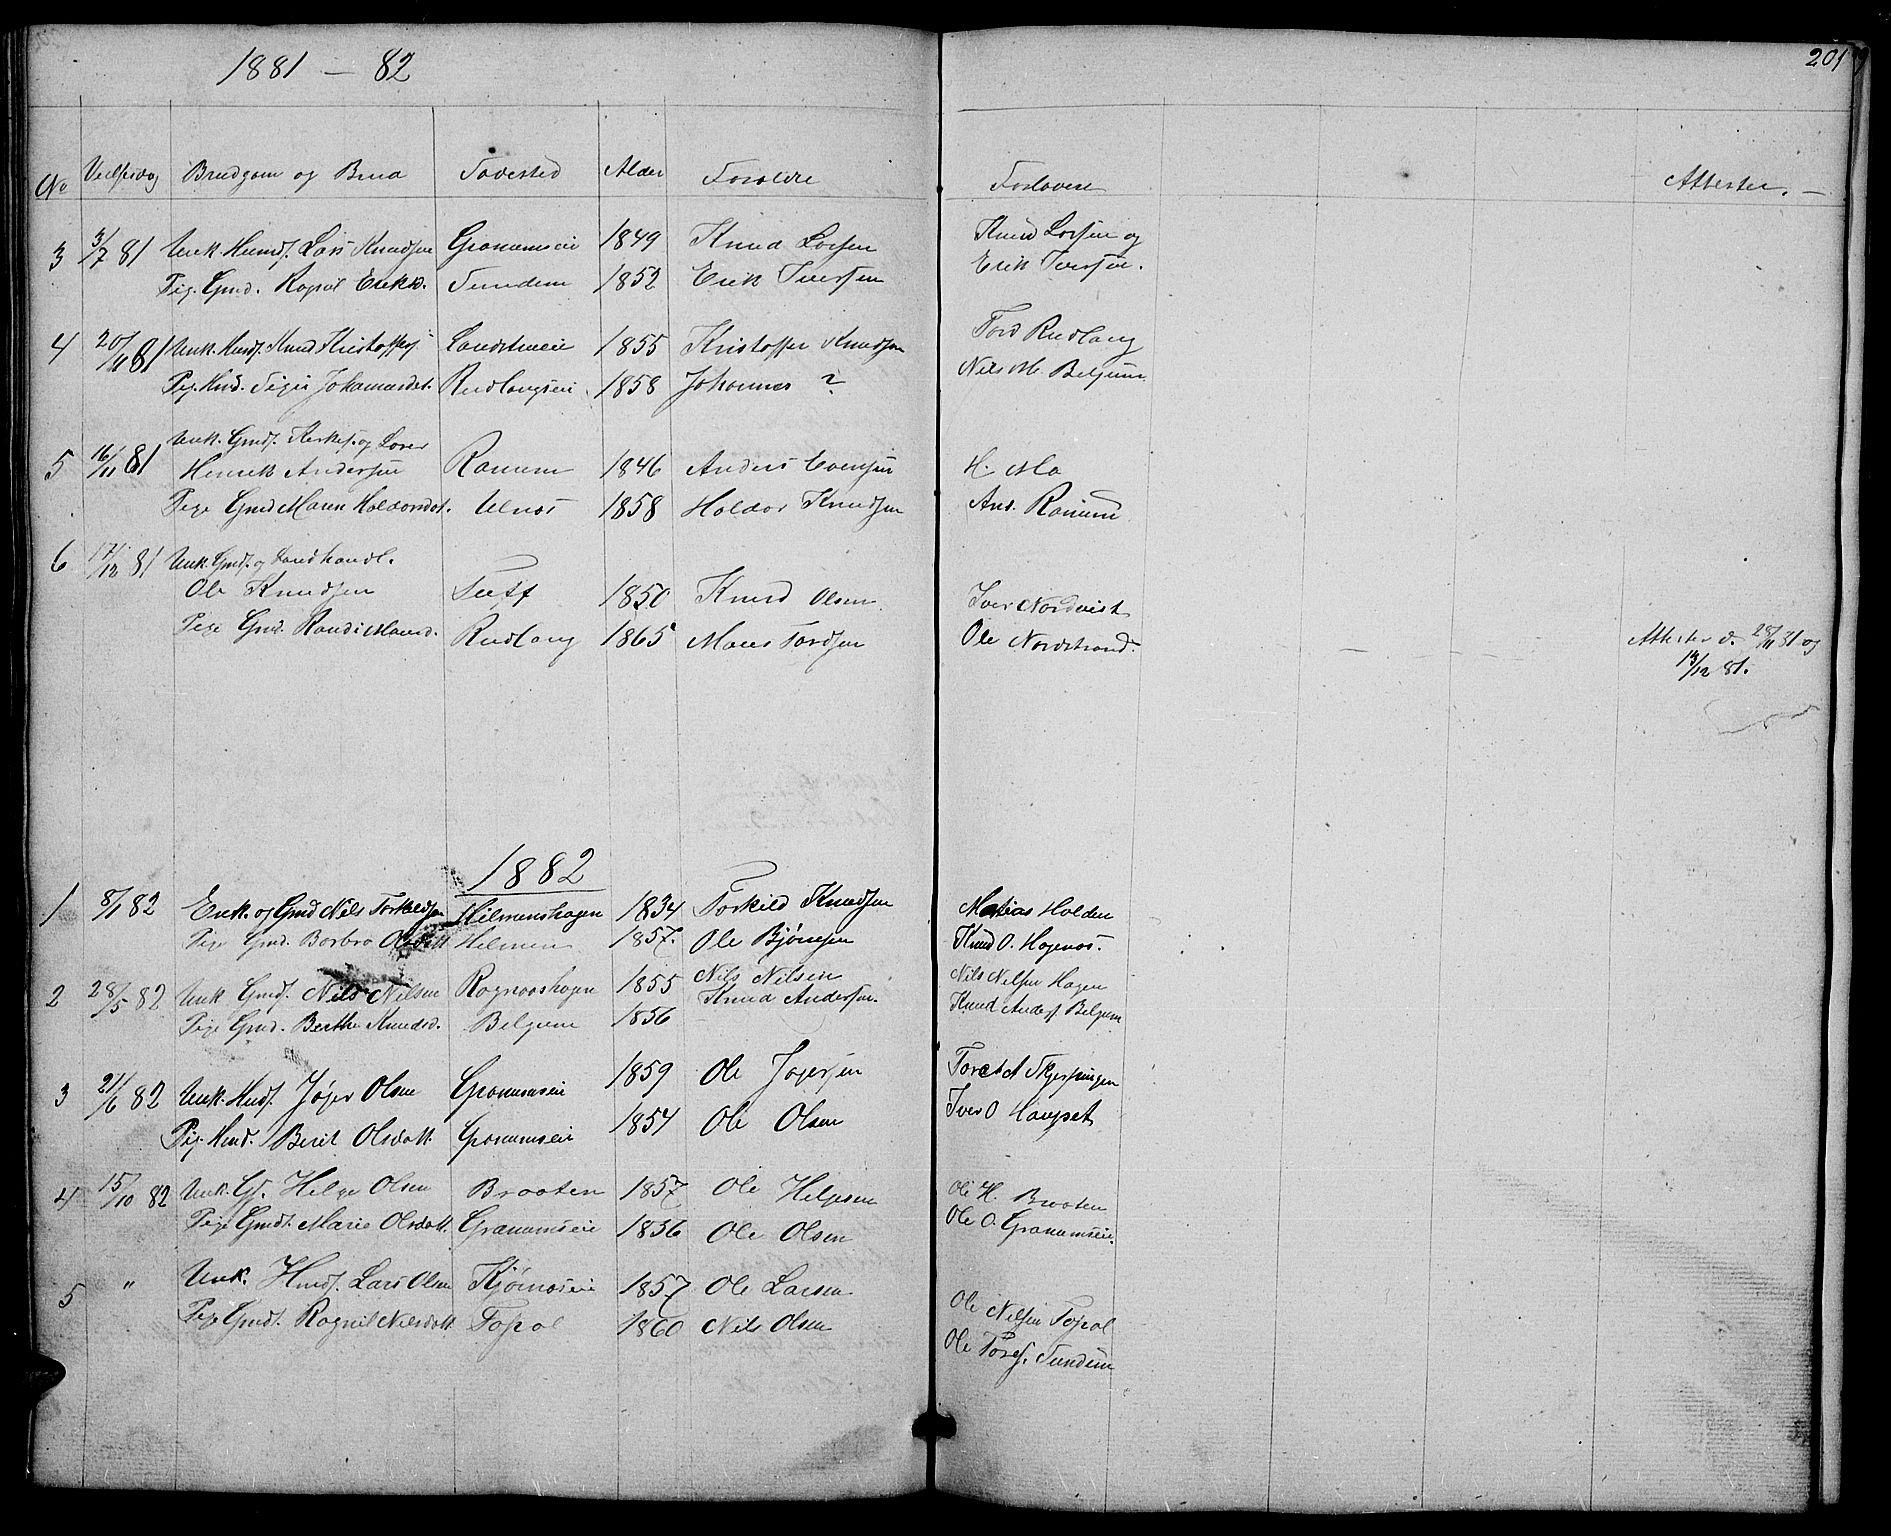 1881 - 82
201
No Vielsesdag Brudgom og Brud Fødested Alder Forældre Forlovere Attester. -
3 3/7 81 Unk. Huusf. Lars Knudsen Granumseie 1849 Knud Larsen Knud Larsen og
Pig. Gmd. Eriksd. Sundem 1852 Erik Iversen Erik Iversen.
4 20/11 81 Unk. Husf. Knud Kristoffers. 1855 Kristoffer Knudsen Tord Rudlang
Pig. Husd. Sigri Johannesdat. Rudlangseie 1858 Johannes ? Nils M. Belgum
5 16/11 81 Unk. Gmdf. Kirkes. og Lærer
Henrik Andersen Ranum 1846 Anders H. Mo
Pige Gmd Maren Haldorsdat. Ulnæs 1858 Haldor Knudsen And. Ranum
6 17/12 81 Unk. Gmdf. og Landhandl.
Ole Knudsen Tuff 1850 Knud Olsen Iver Nordvist
Pige Gmd. Randi Maansd. Rudlang 1865 Maans Tordsen Ole Nordstrand. Attester d. 28/11 81 og
13/12 81.
1882
1 8/1 82 Enk. og Gmd Nils Torkildsen Hilmenshagen 1834 Torkild Knudsen Matias Holden
Pige Gmd. Barbro Olsdatt Helmen 1857. Ole Bjørnsen Knud O. Hagenæs.
2 28/5 82 Unk Gmdf. Nils Nilsen Rognaashagen 1855 Nils Nilsen Nils Nilsen Hagen
Pige Gmd. Berthe Knudsd. Belgum 1856 Knud Andersen. Knud Anders Belgum
3 21/6 82 Unk. Husf. Jøger Olsen Granumseie 1859 Ole Jøgersen
Pig. Husd. Berit Olsdatt. Granumseie 1854 Ole Olsen Iver O. Haugset
4 15/10 82 Unk. Gf. Helge Olsen Braaten 1857 Ole Helgesen Ole H. Braaten
Pige Gmdf. Marie Olsdatt. Granumseie 1856 Ole Olsen Ole O. Granumseie.
5 " Unk. Husf. Lars Olsen Kjørnaseie 1857 Ole Larsen Ole Nilsen Fosal
Pige Gmdf. Ragnil Nilsdatt. Fosal 1860 Nils Olsen Ole Tores. Sundem